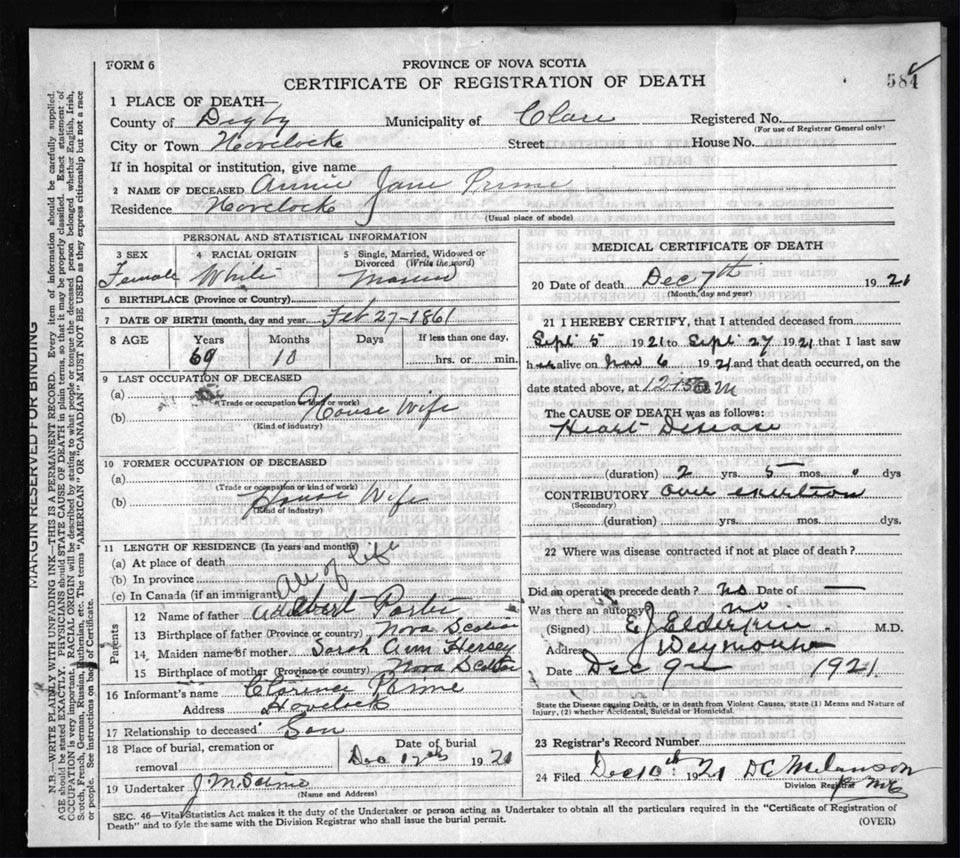 FORM 6
PROVINCE OF NOVA SCOTIA
CERTIFICATE OF REGISTRATION OF DEATH
584
1 PLACE OF DEATH—
County of Digby Municipality of Clare Registered No.
(For use of Registrar General only)
City or Town Havelock Street House No.
If in hospital or institution, give name
2 NAME OF DECEASED Annie Jane Prime
Residence Havelock
(Usual place of abode)
PERSONAL AND STATISTICAL INFORMATION
3 SEX 4 RACIAL ORIGIN 5 Single, Married, Widowed or Divorced (Write the word)
Female White
6 BIRTHPLACE (Province or Country)
7 DATE OF BIRTH (month, day and year Feb 27-1861
8 AGE Years Months Days If less than one day,
69 10 hrs. or min.
9 LAST OCCUPATION OF DECEASED
(a)
(Trade or occupation or kind of work)
(b) House Wife
(Kind of industry)
10 FORMER OCCUPATION OF DECEASED
(a)
(Trade or occupation or kind of work)
(b) House Wife
(Kind of industry)
11 LENGTH OF RESIDENCE (In years and months)
(a) At place of death
(b) In province All of life
(c) In Canada (if an immigrant)
Parents
12 Name of father Porter
13 Birthplace of father (Province or country) Nova Scotia
14 Maiden name of mother Sarah Ann Hersey
15 Birthplace of mother (Province or country) Nova Scotia
16 Informant's name Clarence Prime
Address Havelock
17 Relationship to deceased Son
18 Place of burial, cremation or Date of burial
removal Dec 19 21
19 Undertaker J. M.
(Name and Address)
MEDICAL CERTIFICATE OF DEATH
20 Date of death Dec 7th 19 21
(Month, day and year)
21 I HEREBY CERTIFY, that I attended deceased from
Sept 5 1921 to Sept 27 1921 that I last saw
her alive on Nov 6 1921 and that death occurred, on the
date stated above, at M
The CAUSE OF DEATH was as follows:
Heart Disease
(duration) 2 yrs. 5 mos. 0 dys
CONTRIBUTORY over exertion
(Secondary)
(duration) yrs. mos. dys.
22 Where was disease contracted if not at place of death?
Did an operation precede death? No Date of —
Was there an autopsy no
(Signed) E J Elderkin M.D.
Address Weymouth
Date Dec 9th 1921
State the Disease causing Death, or in death from Violent Causes, state (1) Means and Nature of
Injury, (2) whether Accidental, Suicidal or Homicidal.
23 Registrar's Record Number
24 Filed Dec 10th 1921 D C Melanson
Division Registrar
SEC. 46—Vital Statistics Act makes it the duty of the Undertaker or person acting as Undertaker to obtain all the particulars required in the "Certificate of Registration of
Death" and to fyle the same with the Division Registrar who shall issue the burial permit. (OVER)
MARGIN RESERVED FOR BINDING
N.B.—WRITE PLAINLY WITH UNFADING INK—THIS IS A PERMANENT RECORD. Every item of information should be carefully supplied.
AGE should be stated EXACTLY. PHYSICIANS should STATE CAUSE OF DEATH in plain terms, so that it may be properly classified. Exact statement of
OCCUPATION is very important. RACIAL ORIGIN will be described by stating to what people or tongue the deceased person belonged whether English, Irish,
Scotch, French, German, Russian, Ruthenian, etc. The terms "AMERICAN" OR "CANADIAN" MUST NOT BE USED as they express citizenship but not a race
or people. See instructions on back of Certificate.